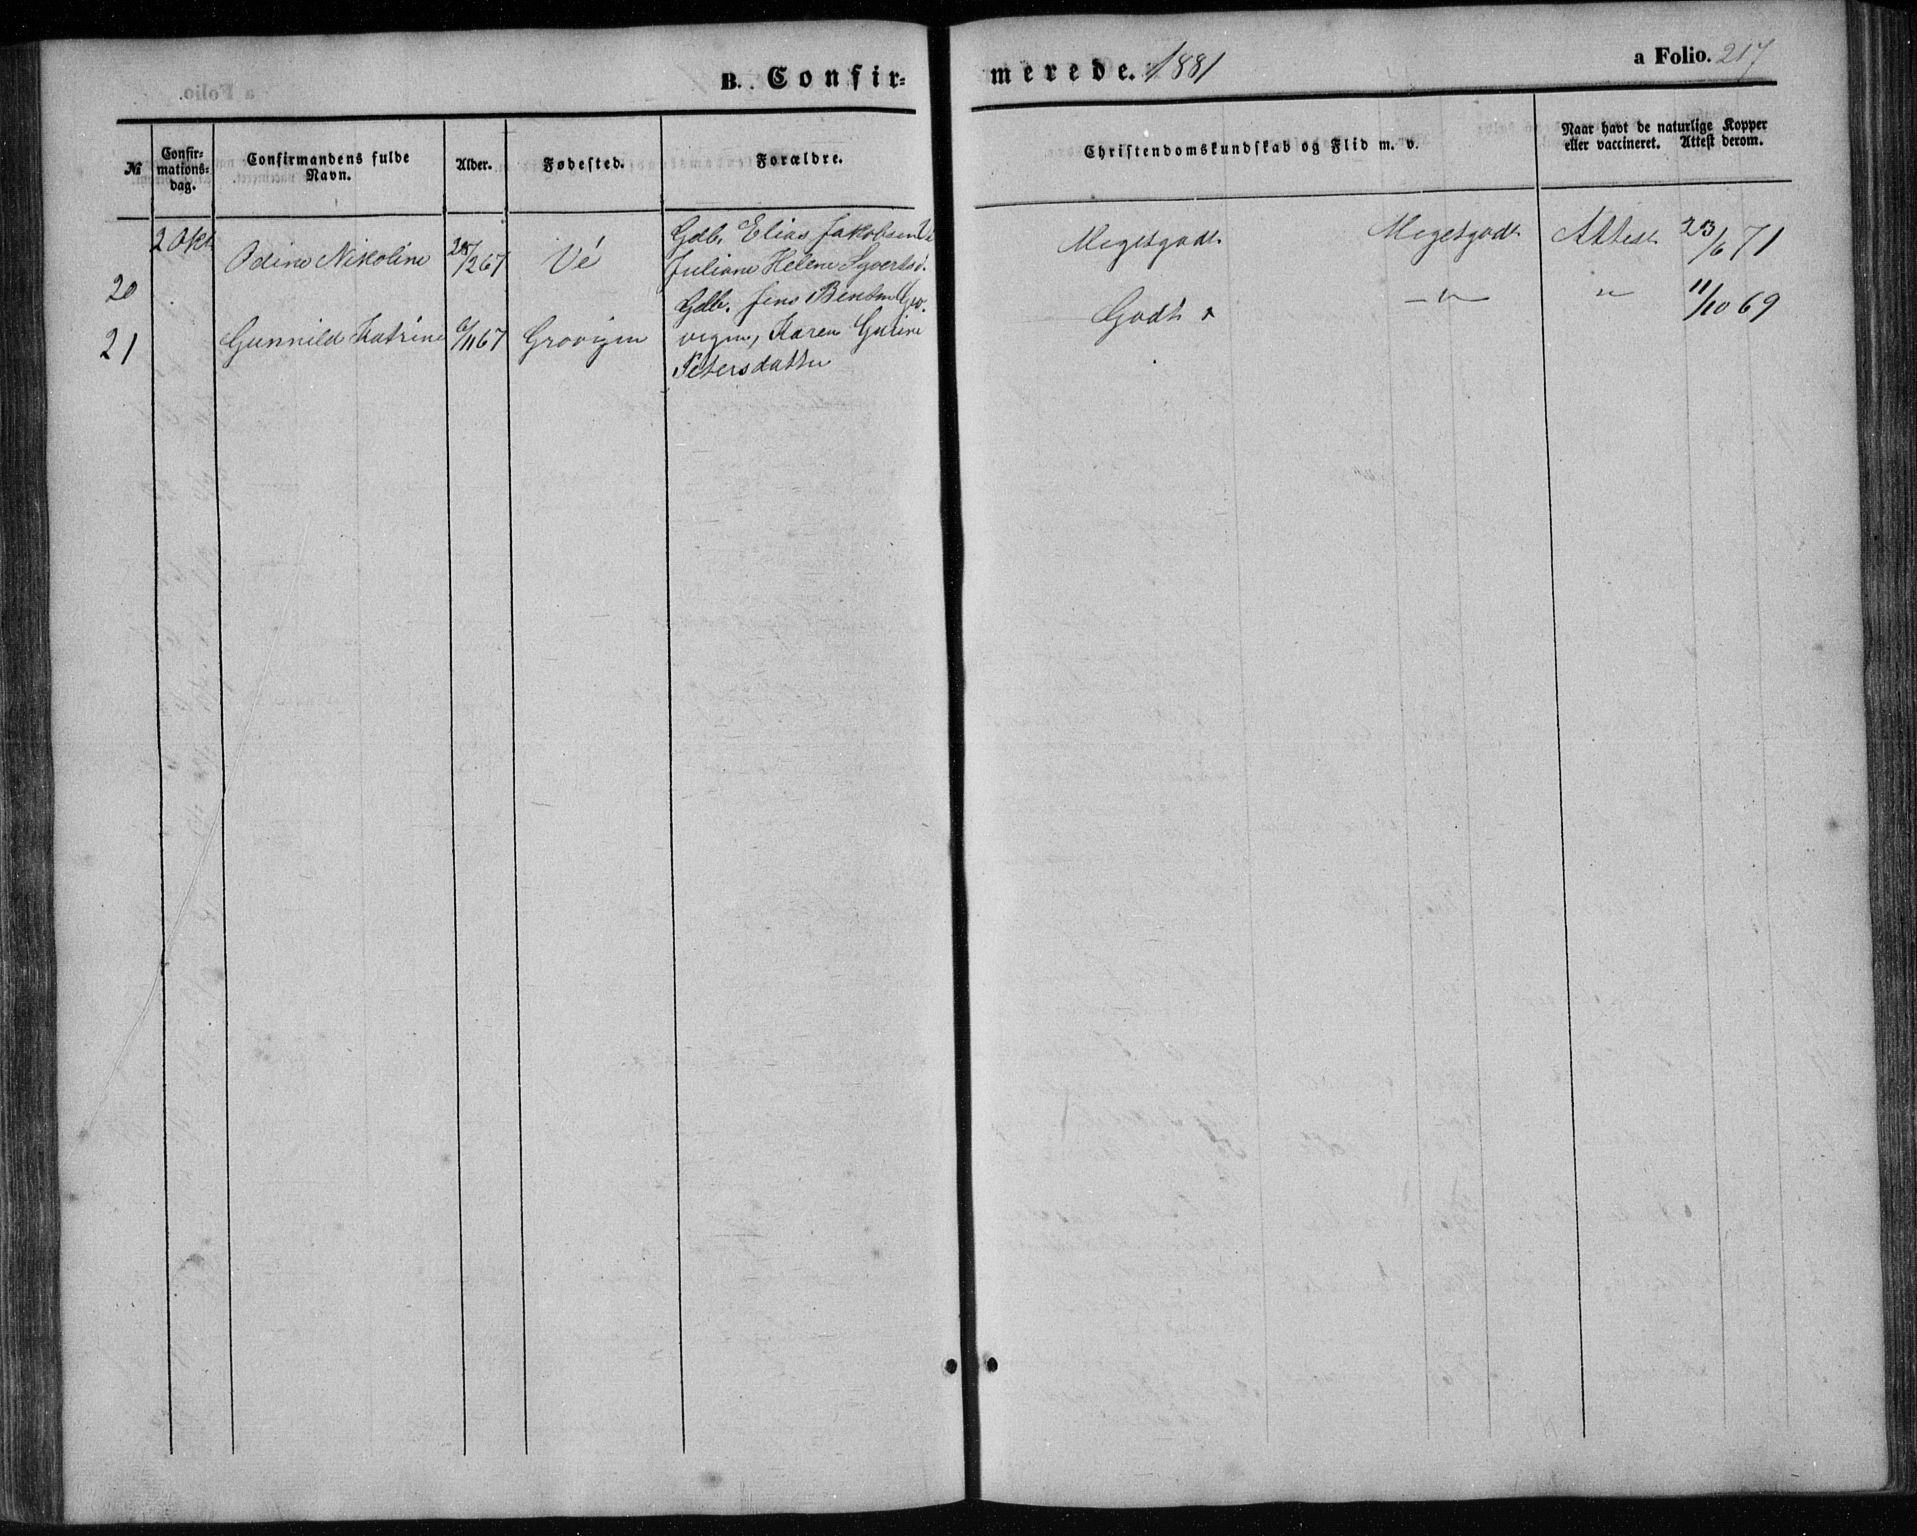 B. Confir-
merede. 1881
a Folio. 217
№
Confir-
mations-
dag.
Confirmandens fulde
Navn.
Alder.
Fødested.
Forældre.
Christendomskundskab og Flid m. v.
Naar havt de naturlige Kopper
eller vaccineret. Attest derom.
2 Okt
20
Odine Nikoline
/2 67
Vé
Gdb. Elias Jakobsen Vé
Juliane Helene Syvertsd.
Megetgodt
Megetgodt
Attest
23/6 71
21
Gunnild Katrine
6/11 67
Grovigen
Gdb. Jens Bentsen Gro-
vigen, Karen Gurine
Petersdatter
Godt
—"—
"
11/10 69